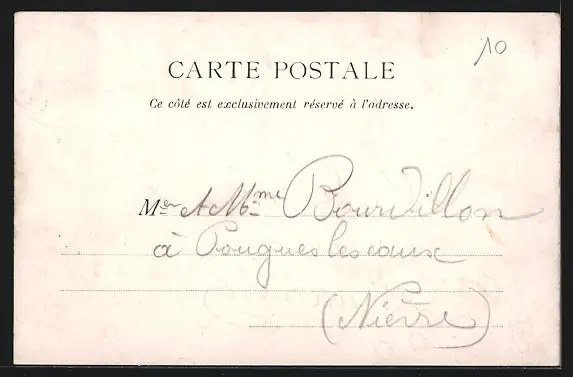 10
CARTE POSTALE
Ce côté est exclusivement réservé à l'adresse.
Mer & Mme Bourdillon
à Pougues les eaux
(Nièvre)